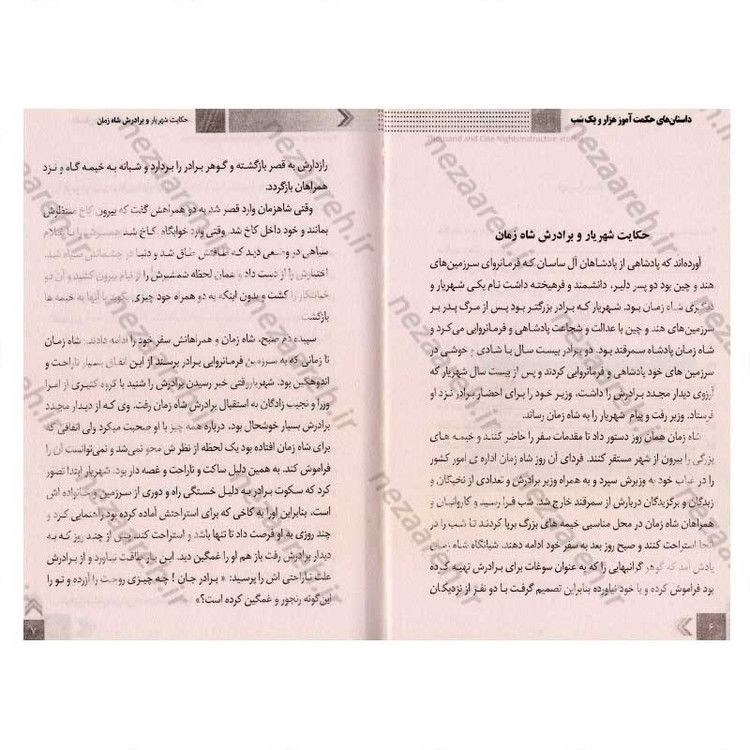 داستان‌های حکمت آموز هزار و یک شب
Thousand and One Nights
حکایت شهریار و برادرش شاه زمان
آورده‌اند که پادشاهی از پادشاهان آل ساسان که فرمانروای سرزمین‌های
هند و چین بود دو پسر دلیر، دانشمند و فرهیخته داشت نام یکی شهریار و
دیگری شاه زمان بود. شهریار که برادر بزرگتر بود پس از مرگ پدر بر
سرزمین‌های هند و چین با عدالت و شجاعت پادشاهی و فرمانروایی می‌کرد و
شاه زمان پادشاه سمرقند بود. دو برادر بیست سال با شادی و خوشی در
سرزمین های خود پادشاهی و فرمانروایی کردند و پس از بیست سال شهریار که
آرزوی دیدار مجدد برادرش را داشت، وزیر خود را برای احضار برادر نزد او
فرستاد. وزیر رفت و پیام شهریار را به شاه زمان رساند.
شاه زمان همان روز دستور داد تا مقدمات سفر را حاضر کنند و خیمه های
بزرگی را بیرون از شهر مستقر کنند. فردای آن روز شاه زمان اداره ی امور کشور
را در غیاب خود به وزیرش سپرد و به همراه وزیر برادرش و تعدادی از نخبگان و
زبدگان و برگزیدگان دربارش از سمرقند خارج شد. شب فرا رسید و کاروانیان و
همراهان شاه زمان در محل مناسبی خیمه های بزرگ برپا کردند تا شب را در
آنجا استراحت کنند و صبح روز بعد به سفر خود ادامه دهند. شبانگاه شاه زمان
یادش آمد که گوهر گرانبهایی را که به عنوان سوغات برای برادرش تهیه کرده
بود فراموش کرده و با خود نیاورده بنابراین تصمیم گرفت با دو نفر از نزدیکان
۶
حکایت شهریار و برادرش شاه زمان
رازدارش به قصر بازگشته و گوهر برادر را بردارد و شبانه به خیمه گاه و نزد
همراهان بازگردد.
وقتی شاهزمان وارد قصر شد به دو همراهش گفت که بیرون کاخ منتظرش
بمانند و خود داخل کاخ شد. وقتی وارد خوابگاه کاخ شد همسرش را با غلام
سیاهی در وضعی دید که طاقتش طاق شد و دنیا در چشمانش سیاه شد.
اختیارش را از دست داد و همان لحظه شمشیرش را از نیام بیرون کشید و آن دو
خیانتکار را کشت و بدون اینکه به دو همراه خود چیزی بگوید با آنها به خیمه ها
بازگشت.
سپیده دم صبح، شاه زمان و همراهانش سفر خود را ادامه دادند. شاه زمان
تا زمانی که به سرزمین فرمانروایی برادر برسند از این اتفاق بسیار ناراحت و
اندوهگین بود. شهریار‌وقتی خبر رسیدن برادرش را شنید با گروه کثیری از امرا
وزرا و نجیب زادگان به استقبال برادرش شاه زمان رفت. وی که از دیدار مجدد
برادرش بسیار خوشحال بود، درباره همه چیز با او صحبت میکرد ولی اتفاقی که
برای شاه زمان افتاده بود یک لحظه از نظرش محو نمی‌شد و نمی‌توانست آن را
فراموش کند. به همین دلیل ساکت و ناراحت و غصه دار بود. شهریار ابتدا تصور
کرد که سکوت برادر به دلیل خستگی راه و دوری از سرزمین و خانواده اش
است، بنابراین اورا به کاخی که برای استراحتش آماده کرده بود راهنمایی کرد و
چند روزی به او فرصت داد تا تنها باشد و استراحت کند. پس از چند روز که به
دیدار برادرش رفت باز هم او را غمگین دید. این بار طاقت نیاورد و از برادرش
علت ناراحتی اش را پرسید: « برادر جان ! چه چیزی روحت را آزرده و تو را
این‌گونه رنجور و غمگین کرده است؟»
۷
nezaareh.ir